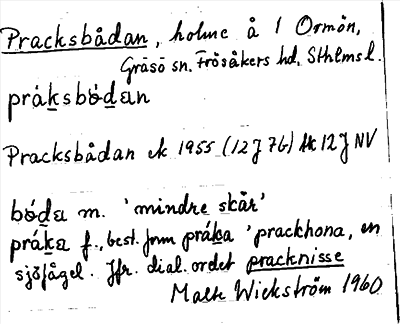 Pracksbådan, holme å 1 Ormön,
Gräsö sn. Frösåkers hd, Sthlms l.
prák̲sbód̲an
Pracksbådan ek 1955 (12J 7b) 12J NV
bód̲a m. 'mindre skär'
prák̲a f., best. form prák̲a 'prackhona, en
sjöfågel. Jfr. dial. ordet pracknisse
Malte Wickström 1960